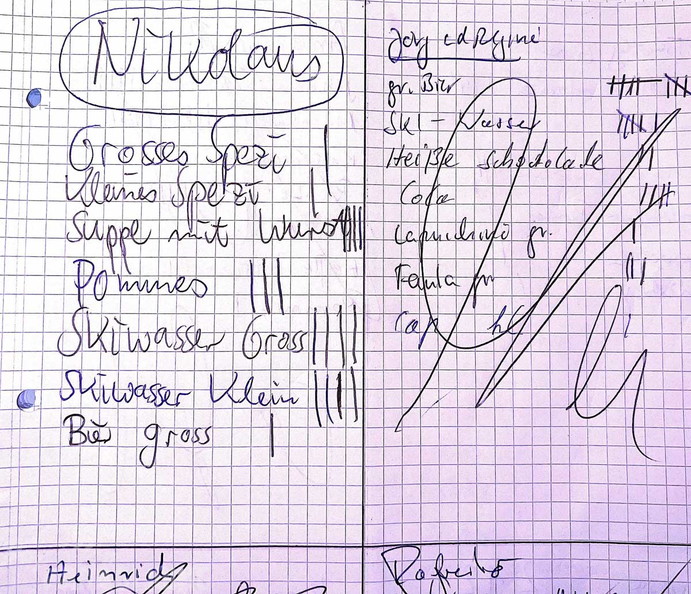 Nikolaus
Grosses Spezi |
Kleines Spezi ||
Suppe mit Wurst ||||
Pommes |||
Skiwasser Gross ||||
Skiwasser Klein ||||
Bier gross |
gr. Bier
Ski-Wasser
Heiße Schokolade ||
Cola
Cappuchino gr. |
gr |||
Cap kl |
Heinrich